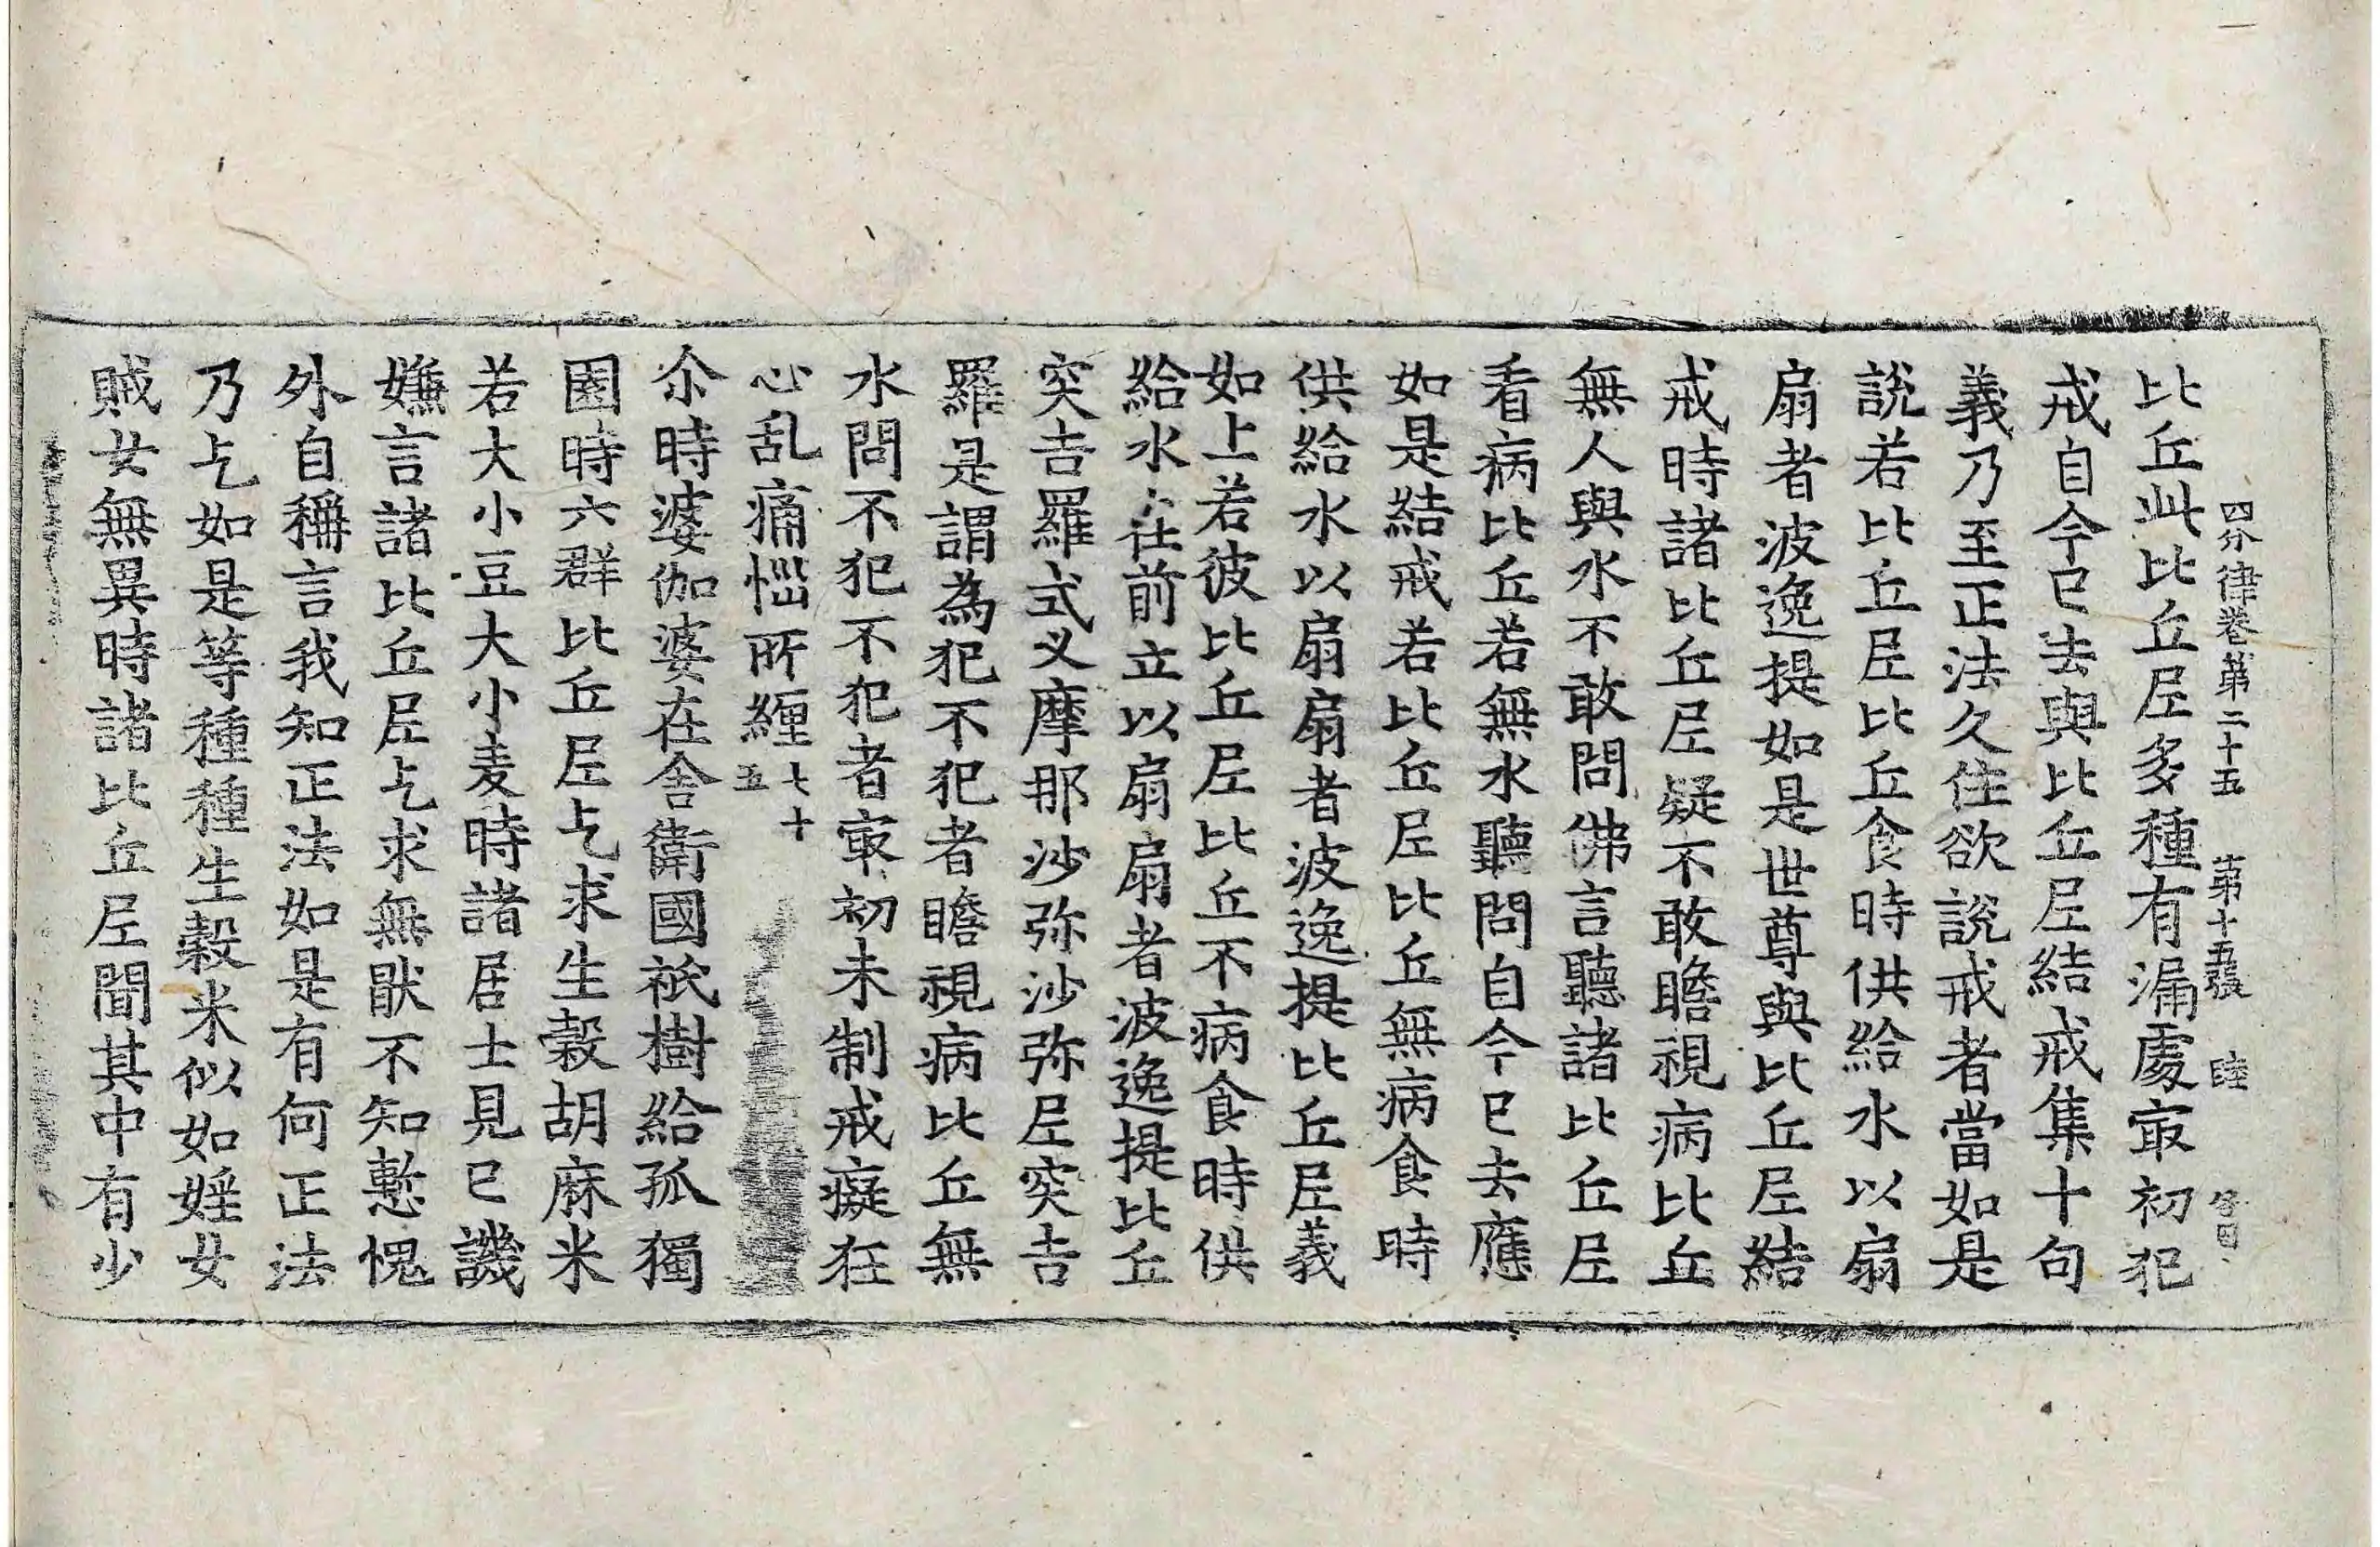 四分律卷第二十五　第十五張　睦
比丘此比丘尼多種有漏處冣初犯
戒自今已去與比丘尼結戒集十句
義乃至正法久住欲說戒者當如是
說若比丘尼比丘食時供給水以扇
扇者波逸提如是世尊與比丘尼結
戒時諸比丘尼疑不敢瞻視病比丘
無人與水不敢問佛言聽諸比丘尼
看病比丘若無水聽問自今已去應
如是結戒若比丘尼比丘無病食時
供給水以扇扇者波逸提比丘尼義
如上若彼比丘尼比丘不病食時供
給水在前立以扇扇者波逸提比丘
突吉羅式叉摩那沙弥沙弥尼突吉
羅是謂為犯不犯者瞻視病比丘無
水問不犯不犯者冣初未制戒癡狂
心乱痛惱所纏七十五
尒時婆伽婆在舍衛國祇樹給孤獨
園時六群比丘尼乞求生穀胡麻米
若大小豆大小麦時諸居士見已譏
嫌言諸比丘尼乞求無猒不知慙愧
外自稱言我知正法如是有何正法
乃乞如是等種種生穀米似如婬女
賊女無異時諸比丘尼聞其中有少